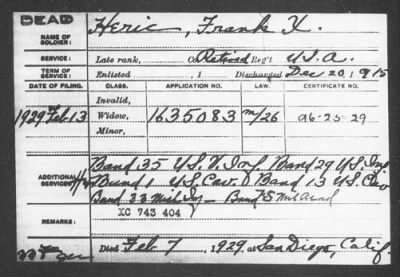 DEAD
NAME OF SOLDIER: Heric, Frank X.
SERVICE: Late rank, Co. Retired Reg't U.S.A.
TERM OF SERVICE: Enlisted , 1 Discharged Dec 20, 1915
DATE OF FILING. CLASS. APPLICATION NO. CERTIFICATE NO.
Invalid,
1929 Feb 13 Widow, 1635083 M/26 A6-25-29
Minor,
ADDITIONAL SERVICES: Band 35 U.S.V. Inf. Band 29 U.S. Inf
Band 1 U.S. Cav. Band 13 U.S. Cav
Band 33 Mich
REMARKS: XC 743 404
Died Feb 7, 1929, at San Diego, Calif.